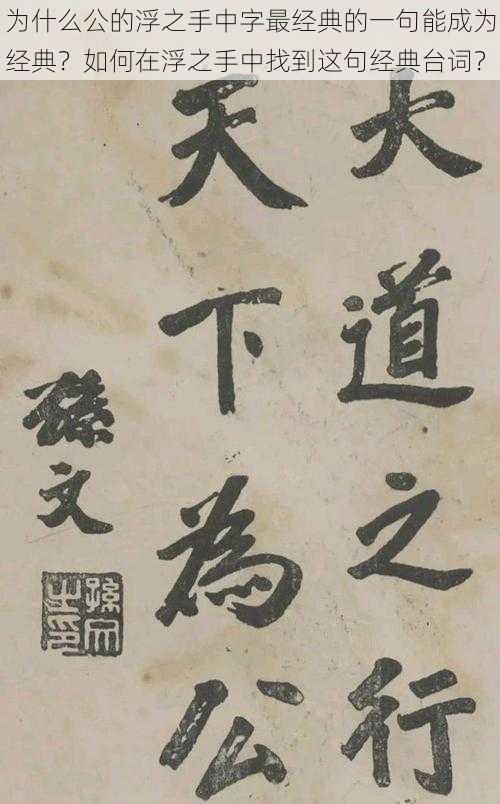 为什么公的浮之手中字最经典的一句能成为
经典？如何在浮之手中找到这句经典台词？
大道之行
天下為公
孫文
孫文之印